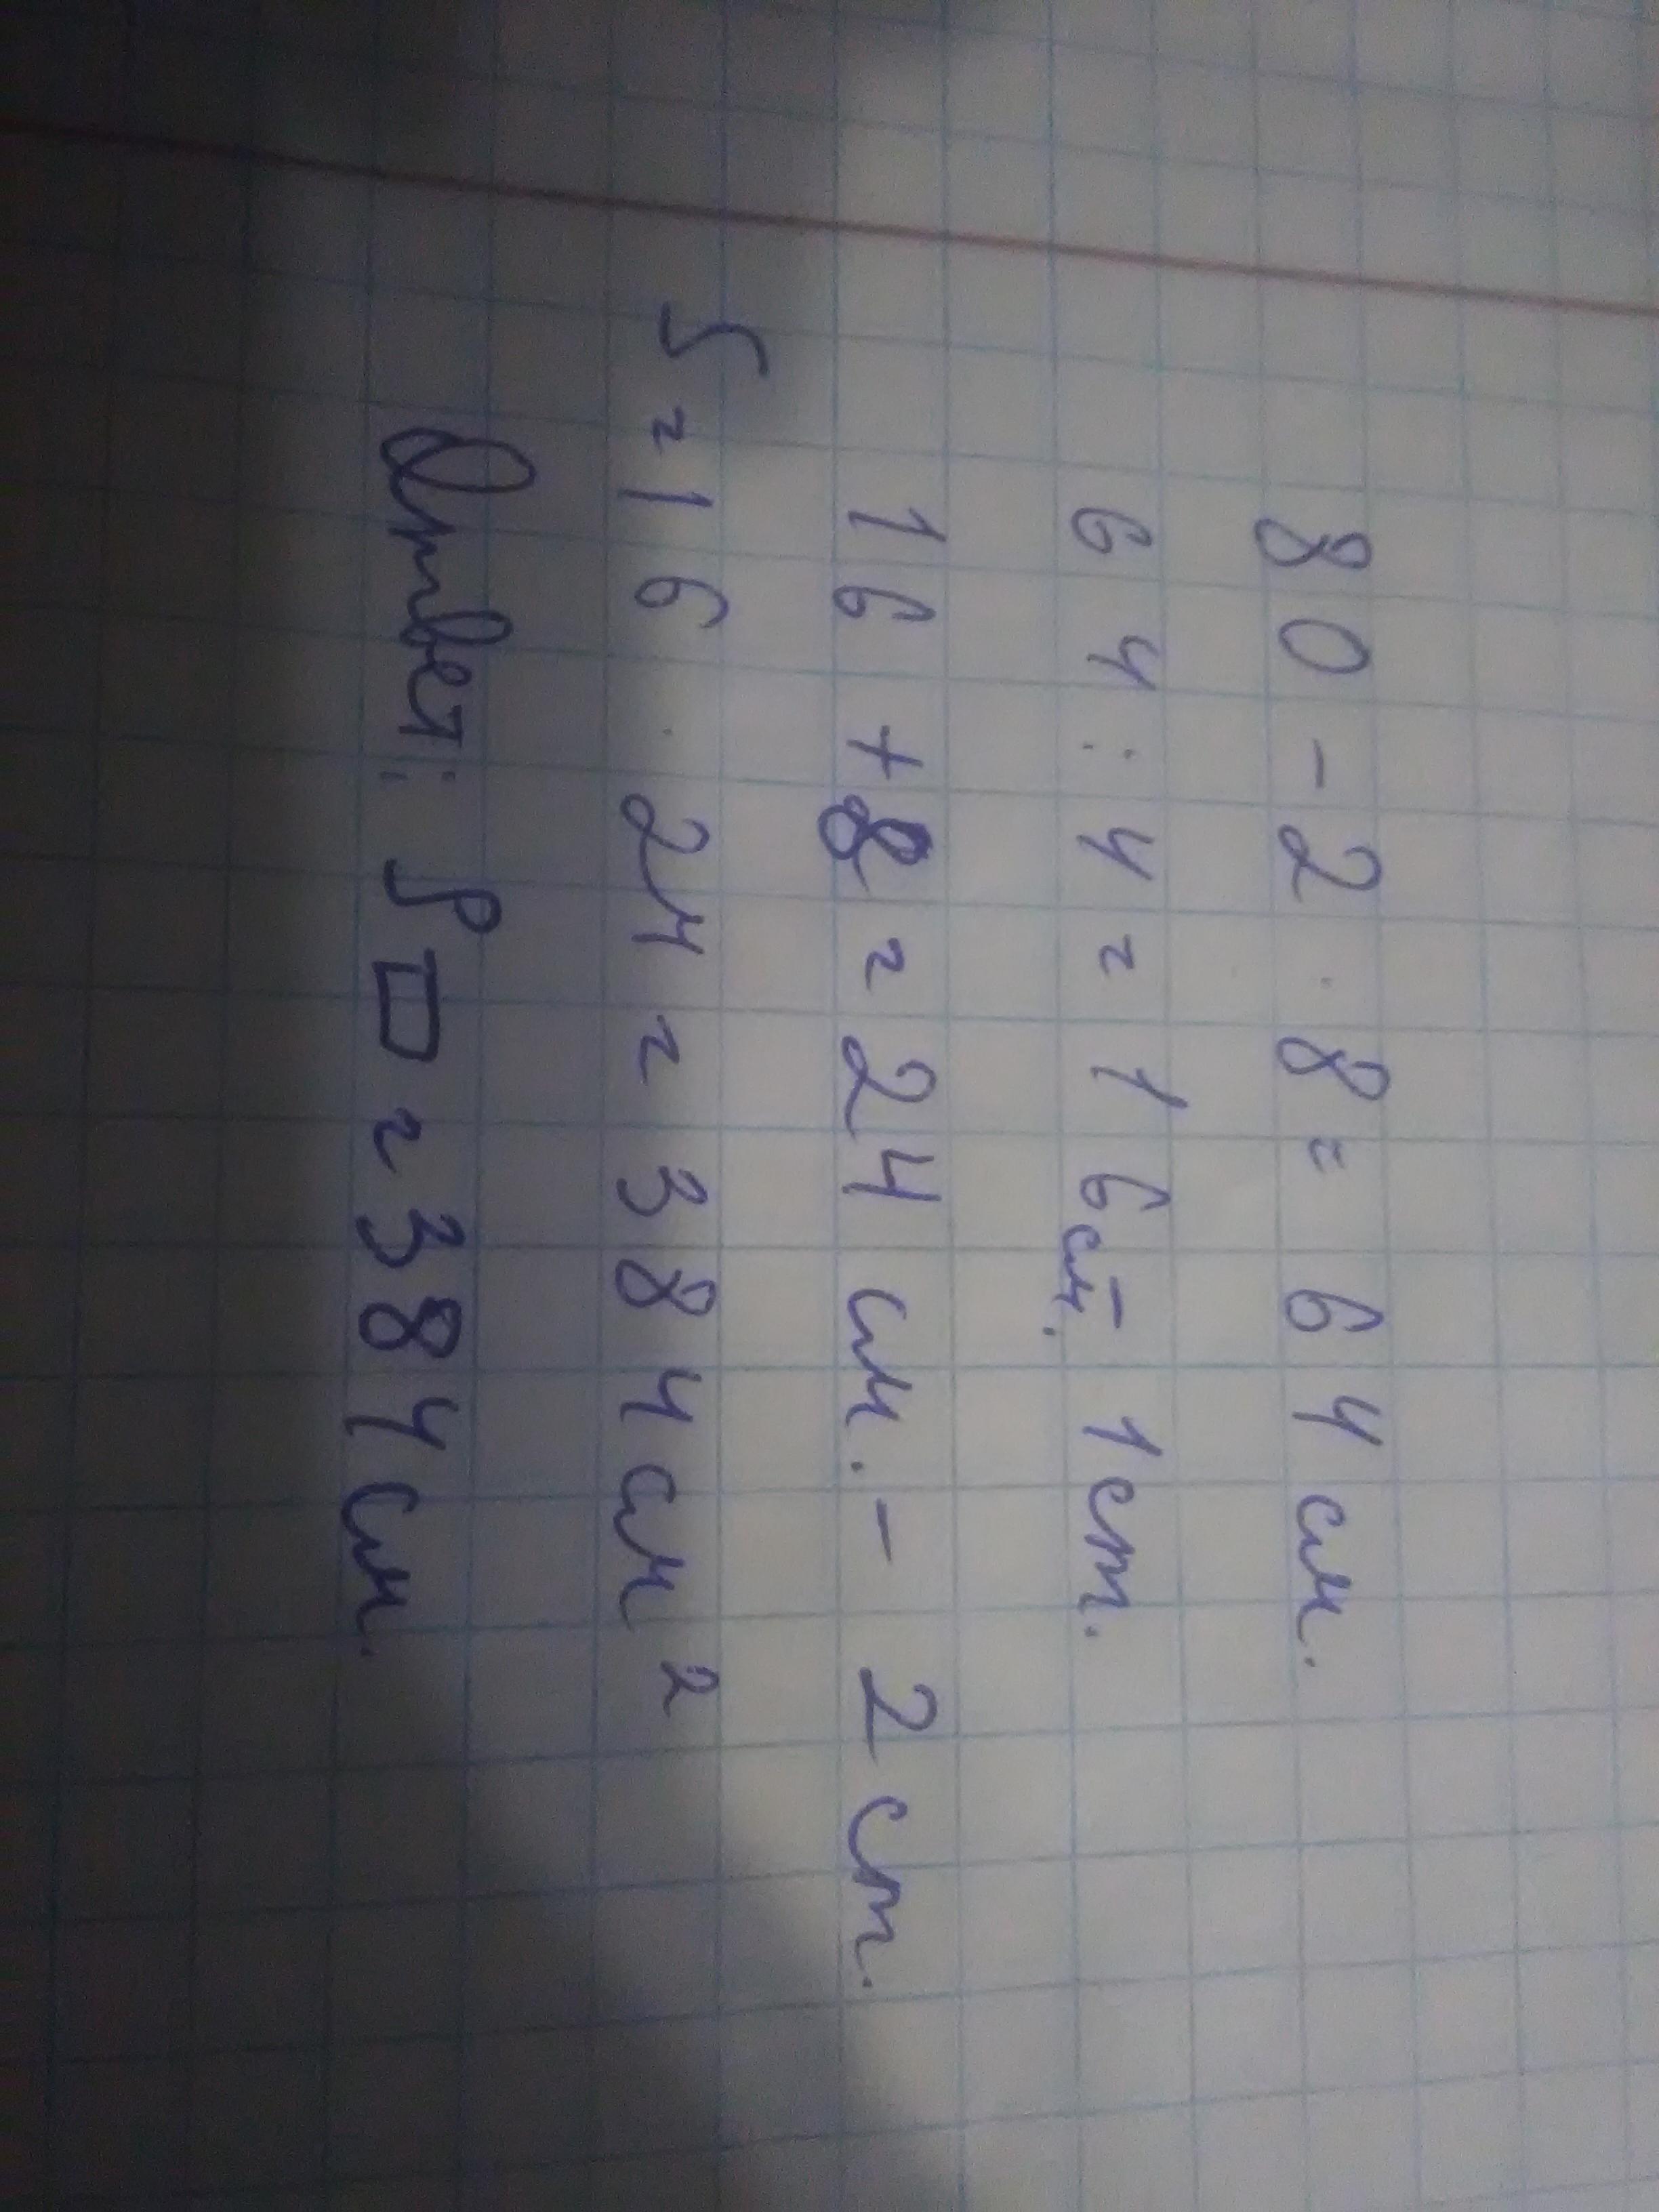 80 - 2 · 8 = 64 см.
64 : 4 = 16 см. - 1 ст.
16 + 8 = 24 см. - 2 ст.
S = 16 · 24 = 384 см²
Ответ: P▭ = 384 см.